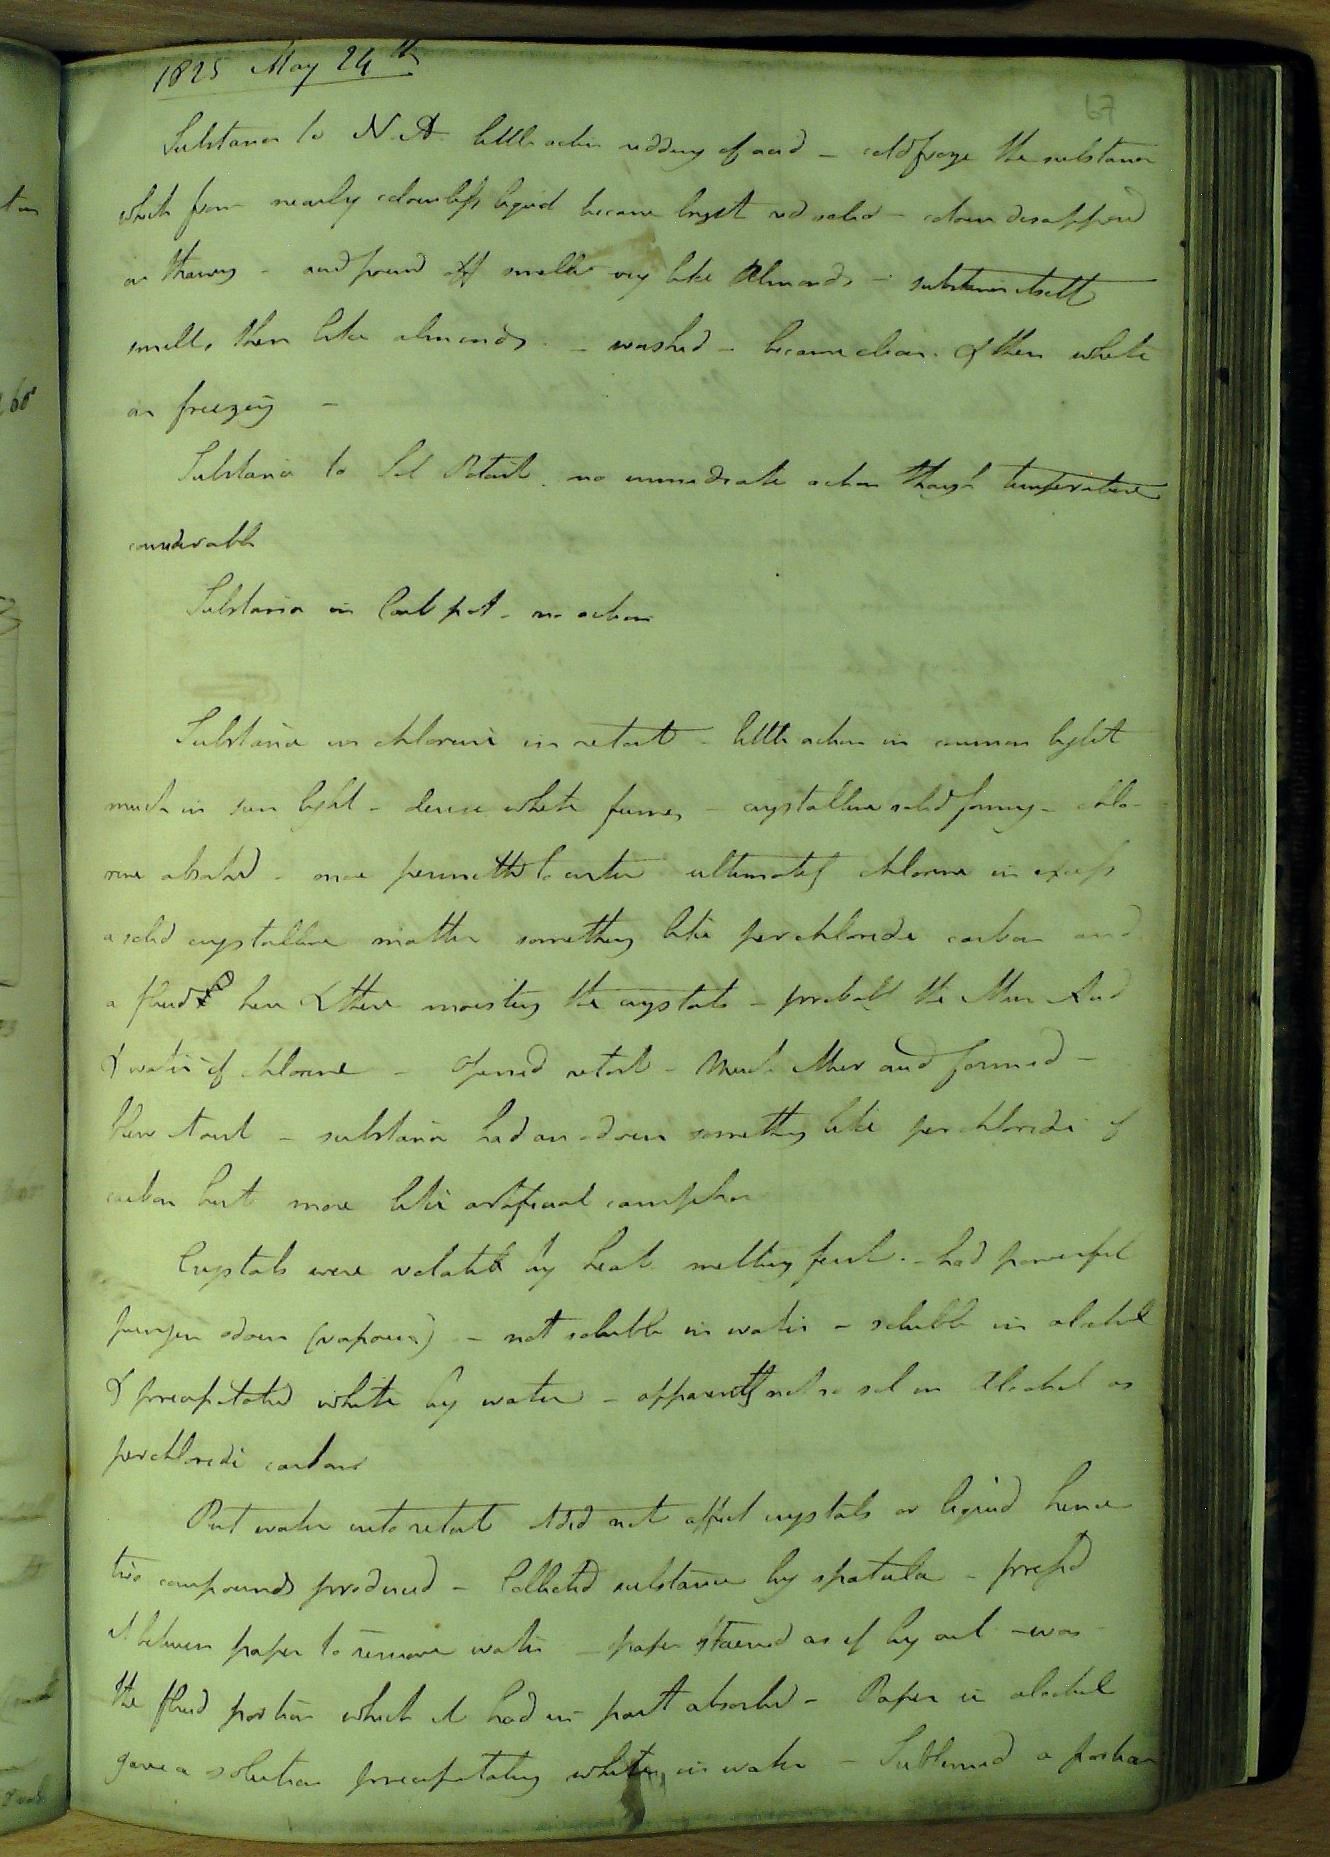 1825 May 24th
67
Substance to N. A. little action reddening of acid - cold froze the substance
which from nearly colourless liquid became bright red solid - colour disappeard
on thawing - acid poured off smells very like Almonds - substance itself
smells then like almonds. - washed - became clear & then white
on freezing -
Substance to Sol Potash. no immediate action though temperature
considerable
Substance in Carb pot - no action
Substance in chlorine in retort - little action in common light
much in sun light - dense white fumes - crystalline solid forming - chlo-
rine absorbed - more permitted to enter ultimately chlorine in excess
a solid crystalline matter something like perchloride carbon and
a fluid here & there moistening the crystals - probably the Mur Acid
& water of chlorine - Opened retort - Much Mur acid formed -
blew it out - substance had an odour something like perchloride of
carbon but more like artificial camphor
Crystals were volatile by heat melting first - had powerful
pungen odour (vapour) - not soluble in water - soluble in alcohol
& precipitated white by water - apparently not so sol in Alcohol as
perchloride carbon
Put water into retort it did not affect crystals or liquid hence
two compounds produced - Collected substance by spatula - pressd
it between paper to remove water - paper stained as if by oil - was
the fluid portion which it had in part absorbed - Paper in alcohol
gave a solution precipitating white in water - Sublimed a portion